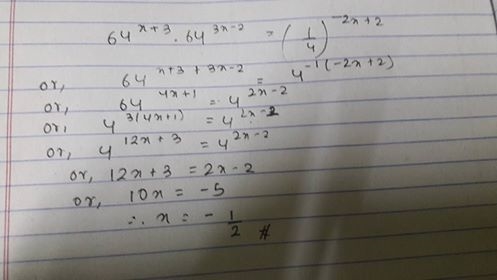 64^{x+3} . 64^{3x-2} = (1/4)^{-2x+2}
or, 64^{x+3+3x-2} = 4^{-1(-2x+2)}
or, 64^{4x+1} = 4^{2x-2}
or, 4^{3(4x+1)} = 4^{2x-2}
or, 4^{12x+3} = 4^{2x-2}
or, 12x+3 = 2x-2
or, 10x = -5
∴ x = -1/2 #